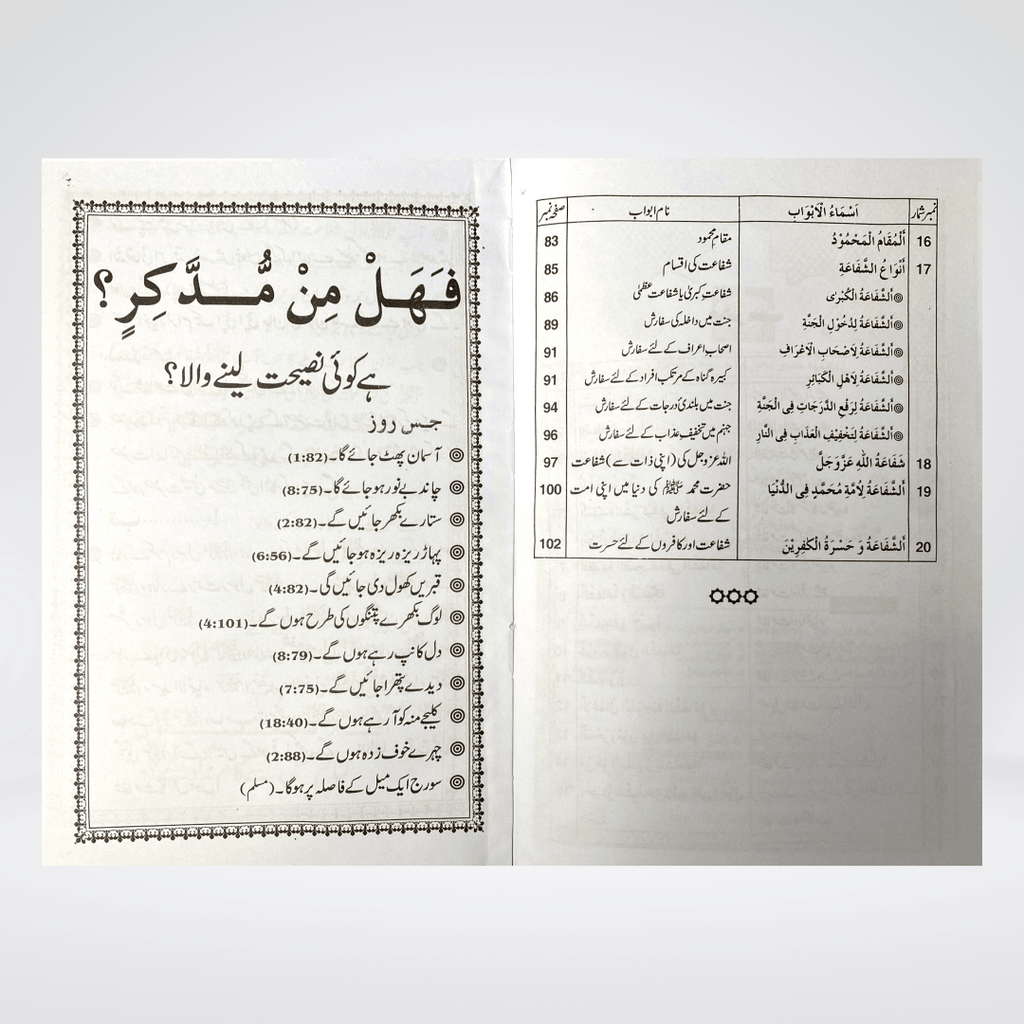 نمبر شمار اَسْمَاءُ الْاَبْوَابِ نام ابواب صفحہ نمبر
16 اَلْمُقَامُ الْمَحْمُوْدُ مقامِ محمود 83
17 اَنْوَاعُ الشَّفَاعَةِ شفاعت کی اقسام 85
◎اَلشَّفَاعَةُ الْكُبْرٰى شفاعتِ کبریٰ یا شفاعت عظمیٰ 86
◎اَلشَّفَاعَةُ لِدُخُوْلِ الْجَنَّةِ جنت میں داخلہ کی سفارش 89
◎اَلشَّفَاعَةُ لِاَصْحَابِ الْاَعْرَافِ اصحابِ اعراف کے لئے سفارش 91
◎اَلشَّفَاعَةُ لِاَهْلِ الْكَبَائِرِ کبیرہ گناہ کے مرتکب افراد کے لئے سفارش 91
◎اَلشَّفَاعَةُ لِرَفْعِ الدَّرَجَاتِ فِى الْجَنَّةِ جنت میں بلندیٔ درجات کے لئے سفارش 94
◎اَلشَّفَاعَةُ لِتَخْفِيْفِ الْعَذَابِ فِى النَّارِ جہنم میں تخفیفِ عذاب کے لئے سفارش 96
18 شَفَاعَةُ اللّٰهِ عَزَّوَجَلَّ اللہ عزوجل کی (اپنی ذات سے) شفاعت 97
19 اَلشَّفَاعَةُ لِاُمَّةِ مُحَمَّدٍ فِى الدُّنْيَا حضرت محمد ﷺ کی دنیا میں اپنی امت 100
کے لئے سفارش
20 اَلشَّفَاعَةُ وَ حَسْرَةُ الْكٰفِرِيْنَ شفاعت اور کافروں کے لئے حسرت 102
فَهَلْ مِنْ مُّدَّكِرٍ؟
ہے کوئی نصیحت لینے والا؟
جس روز
◎ آسمان پھٹ جائے گا۔(1:82)
◎ چاند بے نور ہو جائے گا۔(8:75)
◎ ستارے بکھر جائیں گے۔(2:82)
◎ پہاڑ ریزہ ریزہ ہو جائیں گے۔(6:56)
◎ قبریں کھول دی جائیں گی۔(4:82)
◎ لوگ بکھرے پتنگوں کی طرح ہوں گے۔(4:101)
◎ دل کانپ رہے ہوں گے۔(8:79)
◎ دیدے پتھرا جائیں گے۔(7:75)
◎ کلیجے منہ کو آ رہے ہوں گے۔(18:40)
◎ چہرے خوف زدہ ہوں گے۔(2:88)
◎ سورج ایک میل کے فاصلہ پر ہوگا۔(مسلم)